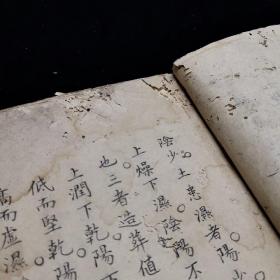 陰少。土患濕者陽。少
上燥下濕。陰陽不
也。三者造葬值
上潤下乾。陽
低而堅。乾陽
高而虛濕